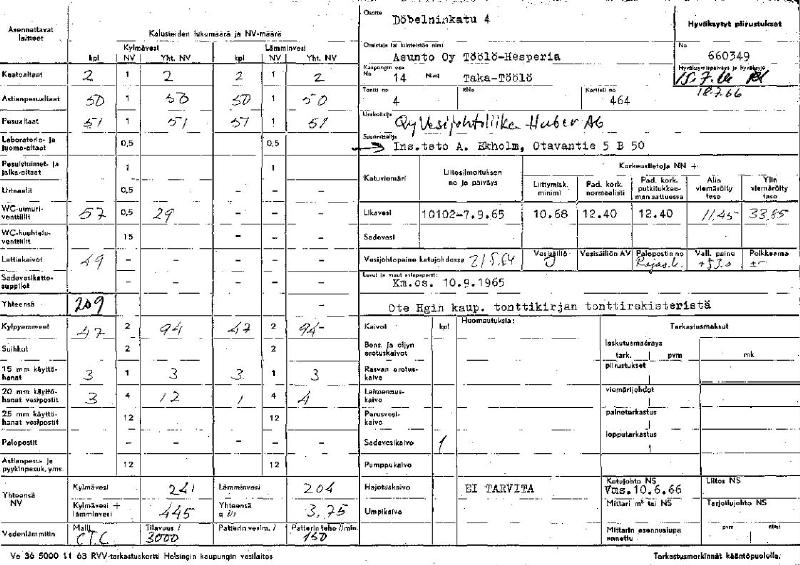 Asennettavat laitteet
Kalusteiden lukumäärä ja NV-määrä
Kylmävesi
Lämminvesi
kpl NV Yht. NV kpl NV Yht. NV
Kaatoaltaat 2 1 2 2 1 2
Astianpesualtaat 50 1 50 50 1 50
Pesualtaat 51 1 51 51 1 51
Laboratorio- ja juoma-altaat 0,5 - - 0,5 -
Pesulaitumet- ja jalka-altaat 1 - - 1 -
Urinaalit 0,5 - - - -
WC-uimuriventtiilit 57 0,5 29 - - -
WC-huuhteluventtiilit 15 - - - -
Lattiakaivot 49 - - - - -
Sadevesikattosuppilot - - - - -
Yhteensä 209
Kylpyammeet 47 2 94 47 2 94
Suihkut 2 - - 2 -
15 mm käyttöhanat 3 1 3 3 1 3
20 mm käyttöhanat vesipostit 3 4 12 1 4 4
25 mm käyttöhanat vesipostit 12 12
Palopostit - - - - -
Astianpesu- ja pyykinpesuk. yms. 12 12
Yhteensä NV
Kylmävesi 241 Lämminvesi 204
Kylmävesi + lämminvesi 445 Yhteensä 3,75
Vedenlämmitin
Malli CTC Tilavuus l 3000 Patterin vesim. l - Patterin teho l/min. 150
Osoite
Döbelninkatu 4
Omistaja tai kiinteistön nimi
Asunto Oy Töölö-Hesperia
Kaupungin osa
No 14 Nimi Taka-Töölö
Tontti no 4 RNo Kortteli no 464
Urakoitsija
Oy Vesijohtoliike Huber Ab
Suunnittelija
Ins.tsto A. Ekholm, Otavantie 5 B 50
Hyväksytyt piirustukset
No 660349
Hyväksymispäivä ja hyväksyjä
15.7.66
18.7.66
Katuviemäri
Liitosilmoituksen no ja päiväys
Korkeustietoja NN +
Liittymisk. minimi
Pad. kork. normaalisti
Pad. kork. putkitukkeeman sattuessa
Alin viemäröity taso
Ylin viemäröity taso
Likavesi 10102-7.9.65 10.68 12.40 12.40 11.45 33.85
Sadevesi -
Vesijohtopaine katujohdossa 21/5.64
Vesisäiliö Vesisäiliön AV Palopostin no Vall. paine +53.0 Poikkeama ±-
Luvut ja muut esiepaperit:
Km.os. 10.9.1965
Ote Hgin kaup. tonttikirjan tonttirekisteristä
Kaivot kpl Huomautuksia:
Bens. ja öljyn erotuskaivot
Rasvan erotuskaivo
Laheuruskaivo
Perusvesikaivo
Sadevesikaivo 1
Pumppukaivo
Hajotuskaivo EI TARVITA
Umpikaivo
Tarkastusmaksut
laskutusmääräys
tark. pvm mk
piirustukset
viemärijohdot
painetarkastus
lopputarkastus
Katujohto NS
Vms.10.6.66
Liitos NS
Mittari m³ tai NS
Tarjoilujohto NS
Mittarin asennuslupa annettu pvm nimi
Ve 36 5000 11 63 RVV-tarkastuskortti Helsingin kaupungin vesilaitos
Tarkastusmerkinnät kääntöpuolella.